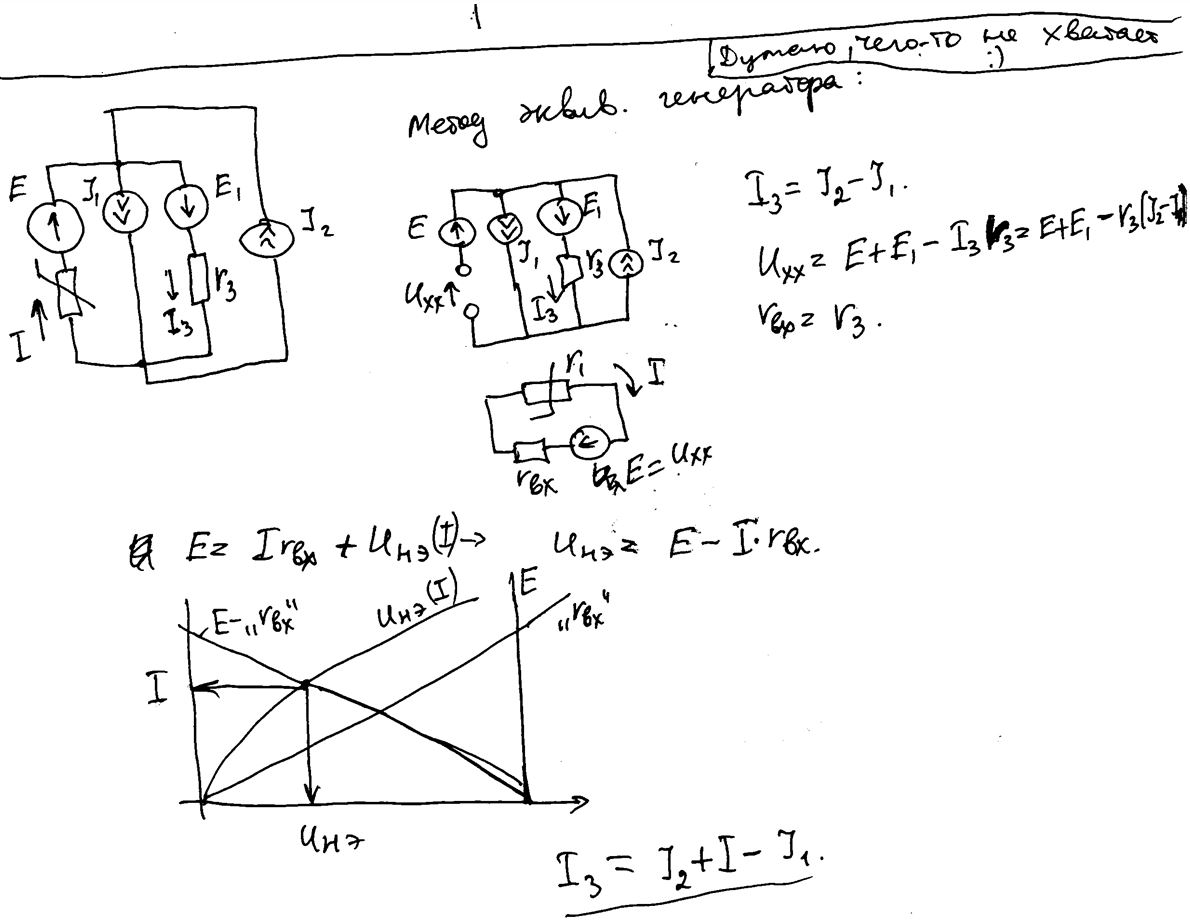 1
Думаю, чего-то не хватает :)
Метод эквив. генератора:
E
J₁
E₁
J₂
r₃
I₃
I
E
J₁
E₁
r₃
J₂
Uxx
I₃
I₃ = J₂ - J₁.
Uxx = E + E₁ - I₃ r₃ = E + E₁ - r₃(J₂ - J₁)
rвх = r₃.
r₁
I
rвх
E = Uxx
E = I rвх + Uнэ(I) →
Uнэ = E - I · rвх.
E - „rвх“
Uнэ(I)
E
„rвх“
I
Uнэ
I₃ = J₂ + I - J₁.